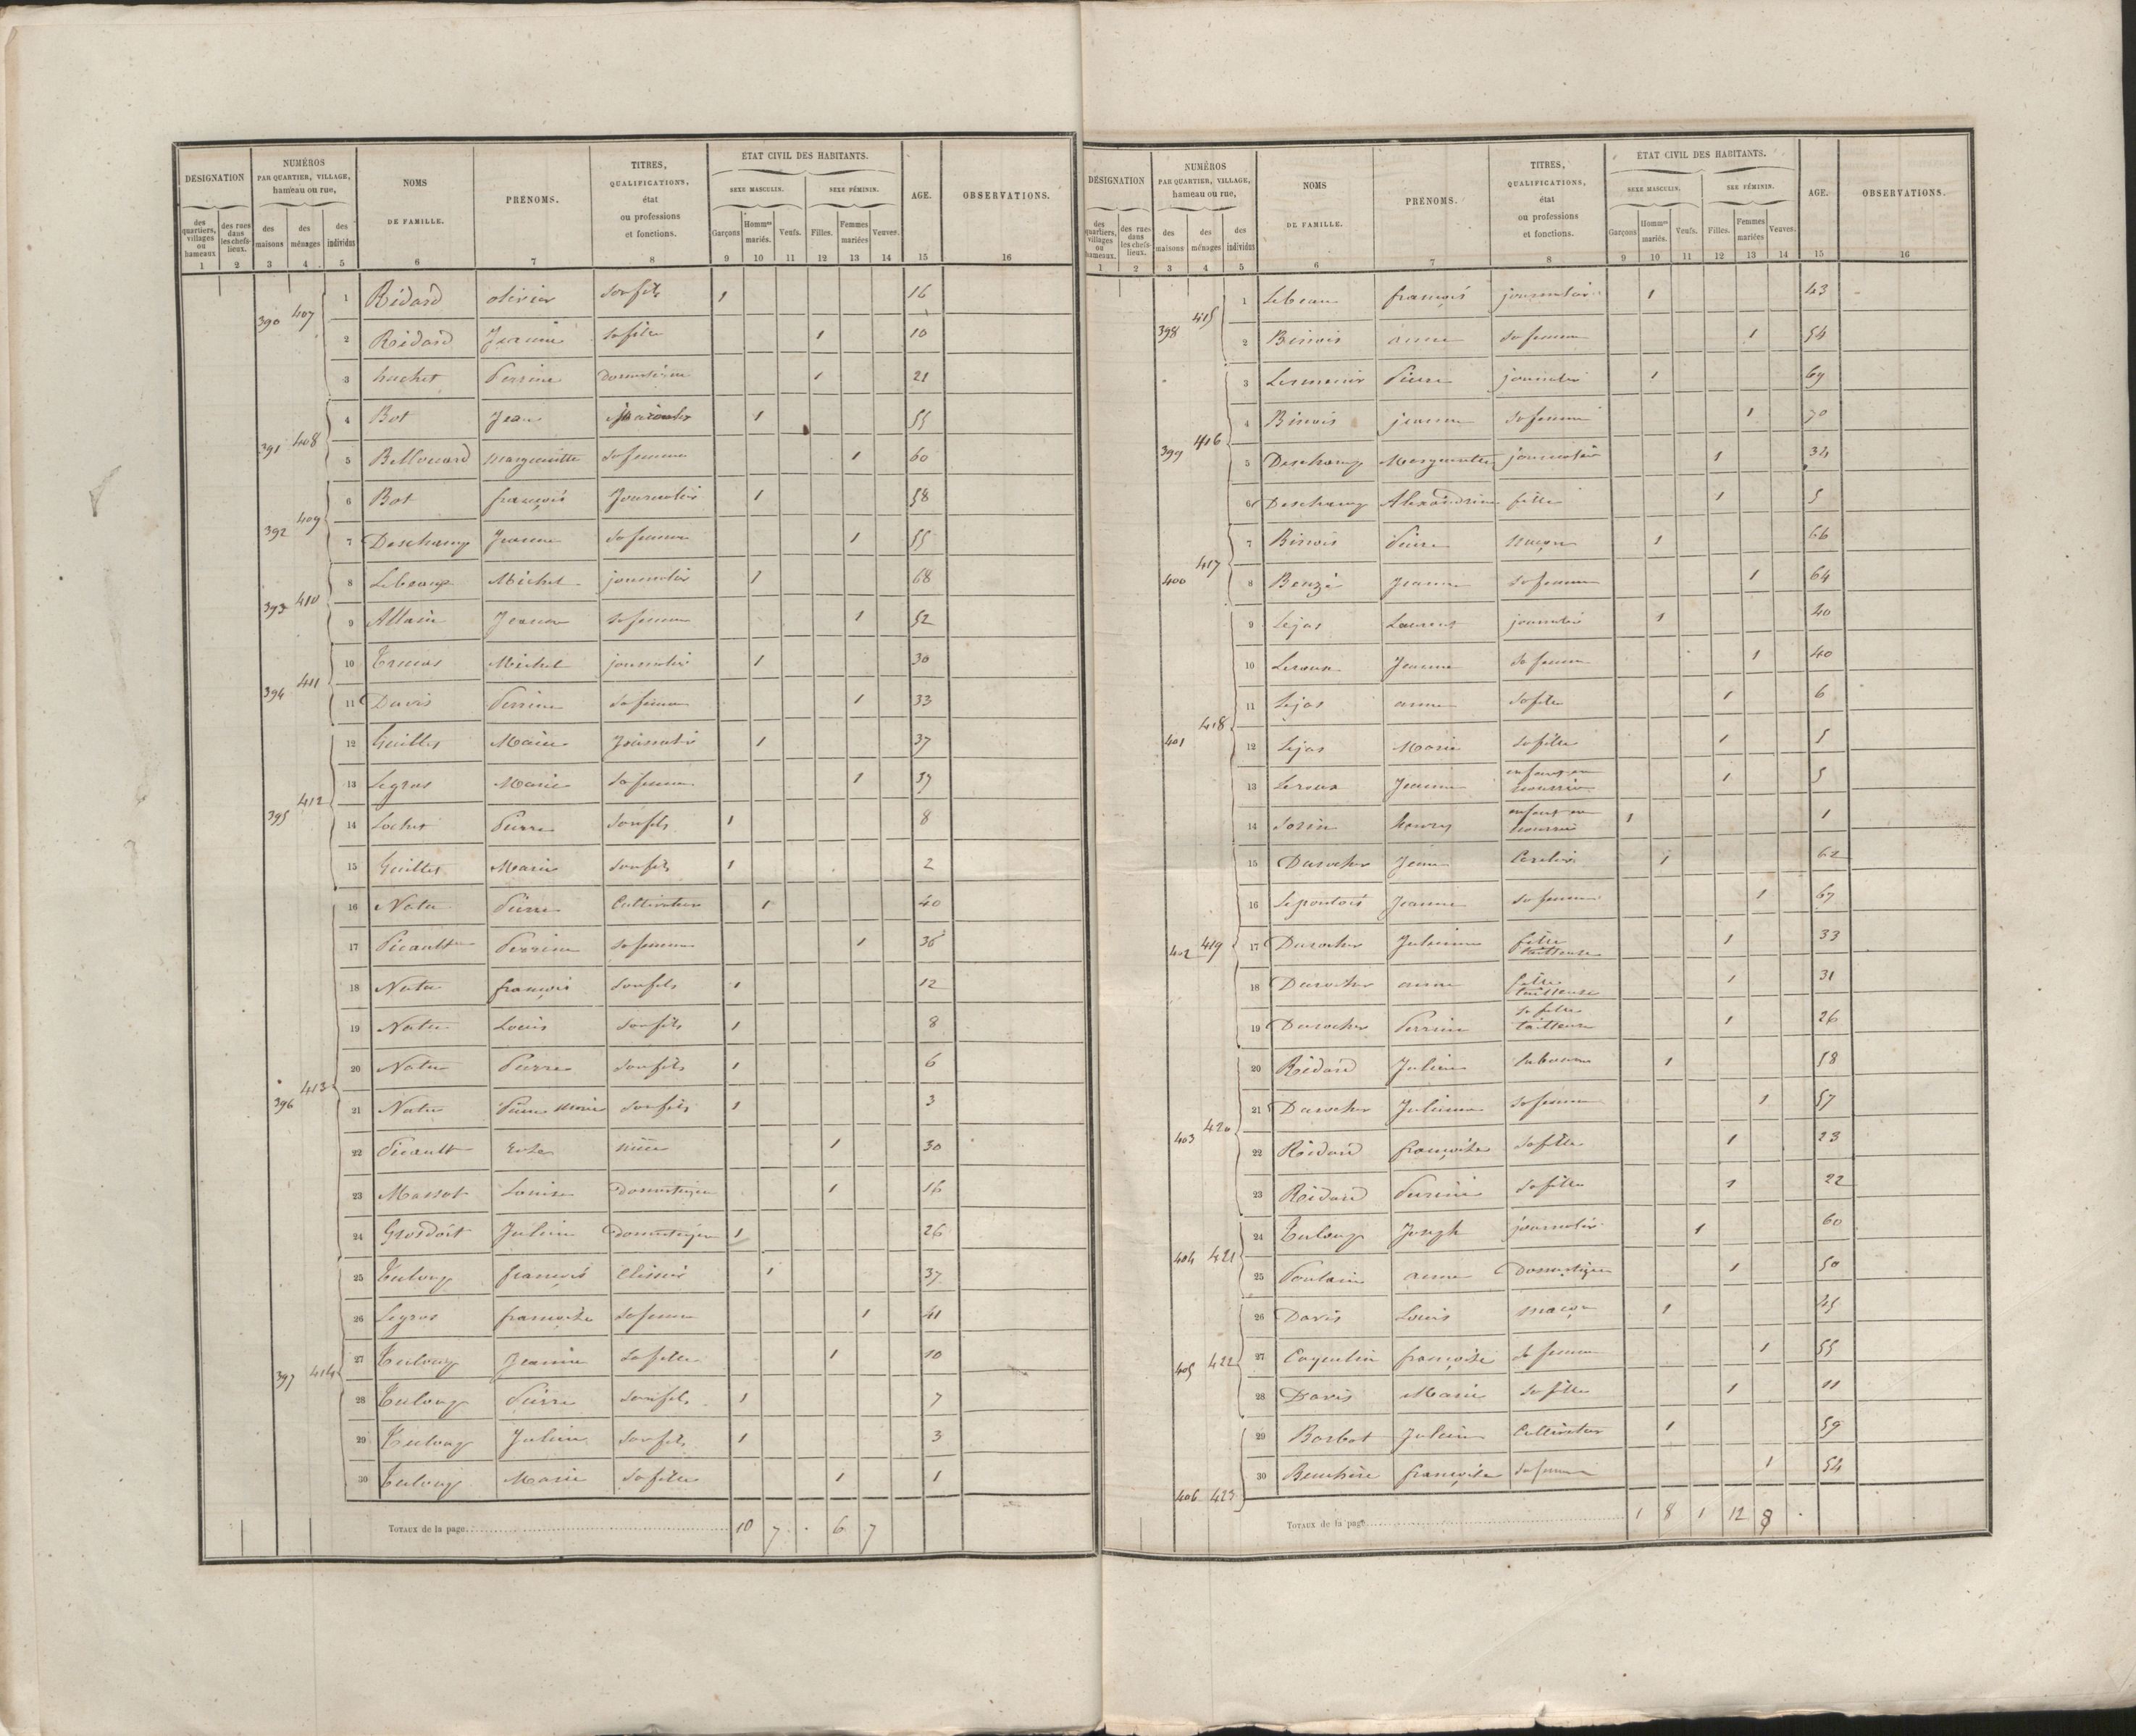 DÉSIGNATION
NUMÉROS
PAR QUARTIER, VILLAGE,
hameau ou rue,
NOMS
DE FAMILLE.
PRÉNOMS.
TITRES,
QUALIFICATIONS,
état
ou professions
et fonctions.
ÉTAT CIVIL DES HABITANTS.
SEXE MASCULIN.
SEXE FÉMININ.
AGE.
OBSERVATIONS.
des quartiers, villages ou hameaux
des rues dans les chefs-lieux.
des maisons
des ménages
des individus
Garçons
Hommes mariés.
Veufs.
Filles.
Femmes mariées
Veuves.
1 2 3 4 5 6 7 8 9 10 11 12 13 14 15 16
390 407
1 Rédard olivier son fils 1 16
2 Rédard Jeanne sa fille 1 10
3 huchet Perrine Domestique 1 21
391 408
4 Bot Jean 1 55
5 Bellouard Marguerite sa femme 1 60
392 409
6 Bot françois Journalier 1 58
7 Deschamp Jeanne sa femme 1 55
393 410
8 Lebeaup Michel journalier 1 68
9 Allain Jeanne sa femme 1 52
394 411
10 Michel journalier 1 30
11 Davis Perrine sa femme 1 33
395 412
12 Guillet Marie Journalier 1 37
13 Legros Marie sa femme 1 37
14 Lochet Pierre son fils 1 8
15 Guillet Marie son fils 1 2
396 413
16 Natu Pierre Cultivateur 1 40
17 Picault Perrine sa femme 1 36
18 Natu françois son fils 1 12
19 Natu Louis son fils 1 8
20 Natu Pierre son fils 1 6
21 Natu Pierre Marie son fils 1 3
22 Picault nièce 1 30
23 Massot Louise Domestique 1 16
24 Grosdoit Julien Domestique 1 26
397 414
25 Tuloup françois 1 37
26 Legros françoise sa femme 1 41
27 Tuloup Jeanne sa fille 1 10
28 Tuloup Pierre son fils 1 7
29 Tuloup Julien son fils 1 3
30 Tuloup Marie sa fille 1 1
TOTAUX de la page 10 7 . 6 7
DÉSIGNATION
NUMÉROS
PAR QUARTIER, VILLAGE,
hameau ou rue,
NOMS
DE FAMILLE.
PRÉNOMS.
TITRES,
QUALIFICATIONS,
état
ou professions
et fonctions.
ÉTAT CIVIL DES HABITANTS.
SEXE MASCULIN.
SEXE FÉMININ.
AGE.
OBSERVATIONS.
des quartiers, villages ou hameaux.
des rues dans les chefs-lieux.
des maisons
des ménages
des individus
Garçons
Hommes mariés.
Veufs.
Filles.
Femmes mariées
Veuves.
1 2 3 4 5 6 7 8 9 10 11 12 13 14 15 16
398 415
1 Lebeau françois journalier 1 43
2 Binois anne sa femme 1 54
399 416
3 Pierre journalier 1 69
4 Binois jeanne sa femme 1 70
5 Deschamp Marguerite journalier 1 34
6 Deschamp Alexandrine fille 1 5
400 417
7 Binois Pierre maçon 1 66
8 Benzé Jeanne sa femme 1 64
401 418
9 Lejas Laurent journalier 1 40
10 Leroux Jeanne sa femme 1 40
11 Lejas anne sa fille 1 6
12 Lejas Marie sa fille 1 5
13 Leroux Jeanne enfant en nourrice 1 5
14 Sorin henry enfant en nourrice 1 1
402 419
15 Durocher Jean 1 62
16 Lepontois Jeanne sa femme 1 67
17 Durocher Julienne fille tailleuse 1 33
18 Durocher anne fille tailleuse 1 31
19 Durocher Perrine sa fille tailleuse 1 26
403 420
20 Rédard Julien laboureur 1 58
21 Durocher Julienne sa femme 1 57
22 Rédard françoise sa fille 1 23
23 Rédard Perrine sa fille 1 22
404 421
24 Tuloup Joseph journalier 1 60
25 Poulain anne Domestique 1 50
405 422
26 Davis Louis maçon 1 45
27 Coquelin françoise sa femme 1 55
28 Davis Marie sa fille 1 11
406 423
29 Barbot Julien Cultivateur 1 59
30 françoise sa femme 1 54
TOTAUX de la page 1 8 1 12 8 .